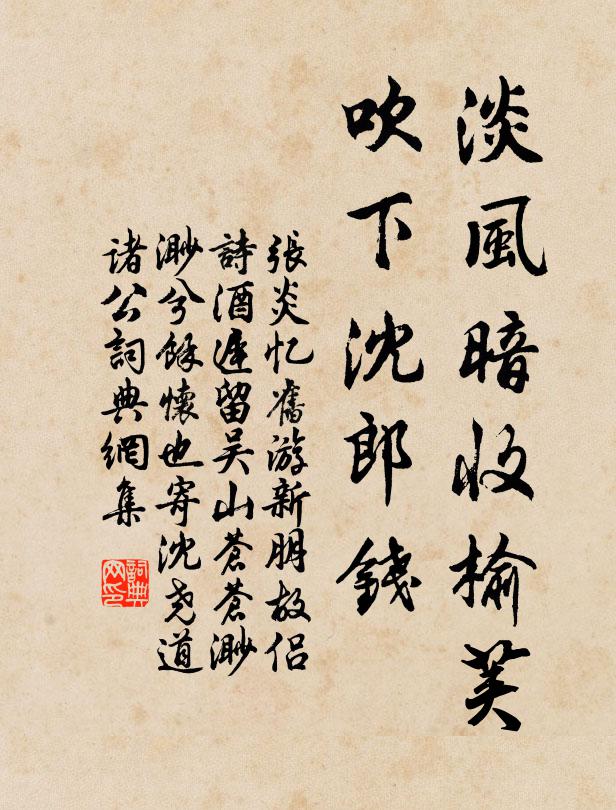 淡風暗收榆莢
吹下沈郎錢
張炎忆舊游新朋故侣
詩酒遲留吴山蒼蒼渺
渺兮餘懷也寄沈尧道
诸公詞典網集
詞典
网印